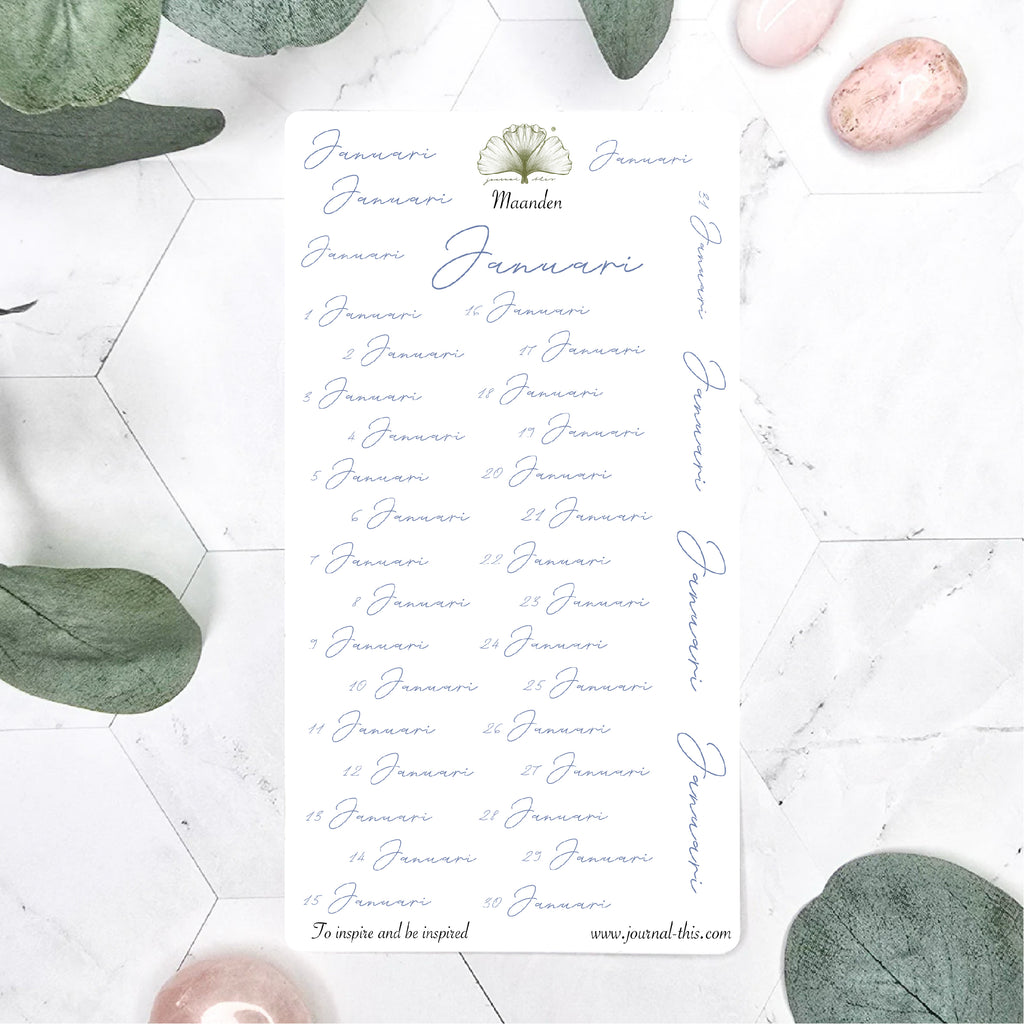 Januari
Januari
journal this
Maanden
Januari
Januari
Januari
1 Januari
2 Januari
3 Januari
4 Januari
5 Januari
6 Januari
7 Januari
8 Januari
9 Januari
10 Januari
11 Januari
12 Januari
13 Januari
14 Januari
15 Januari
16 Januari
17 Januari
18 Januari
19 Januari
20 Januari
21 Januari
22 Januari
23 Januari
24 Januari
25 Januari
26 Januari
27 Januari
28 Januari
29 Januari
30 Januari
31 Januari
Januari
Januari
Januari
To inspire and be inspired
www.journal-this.com